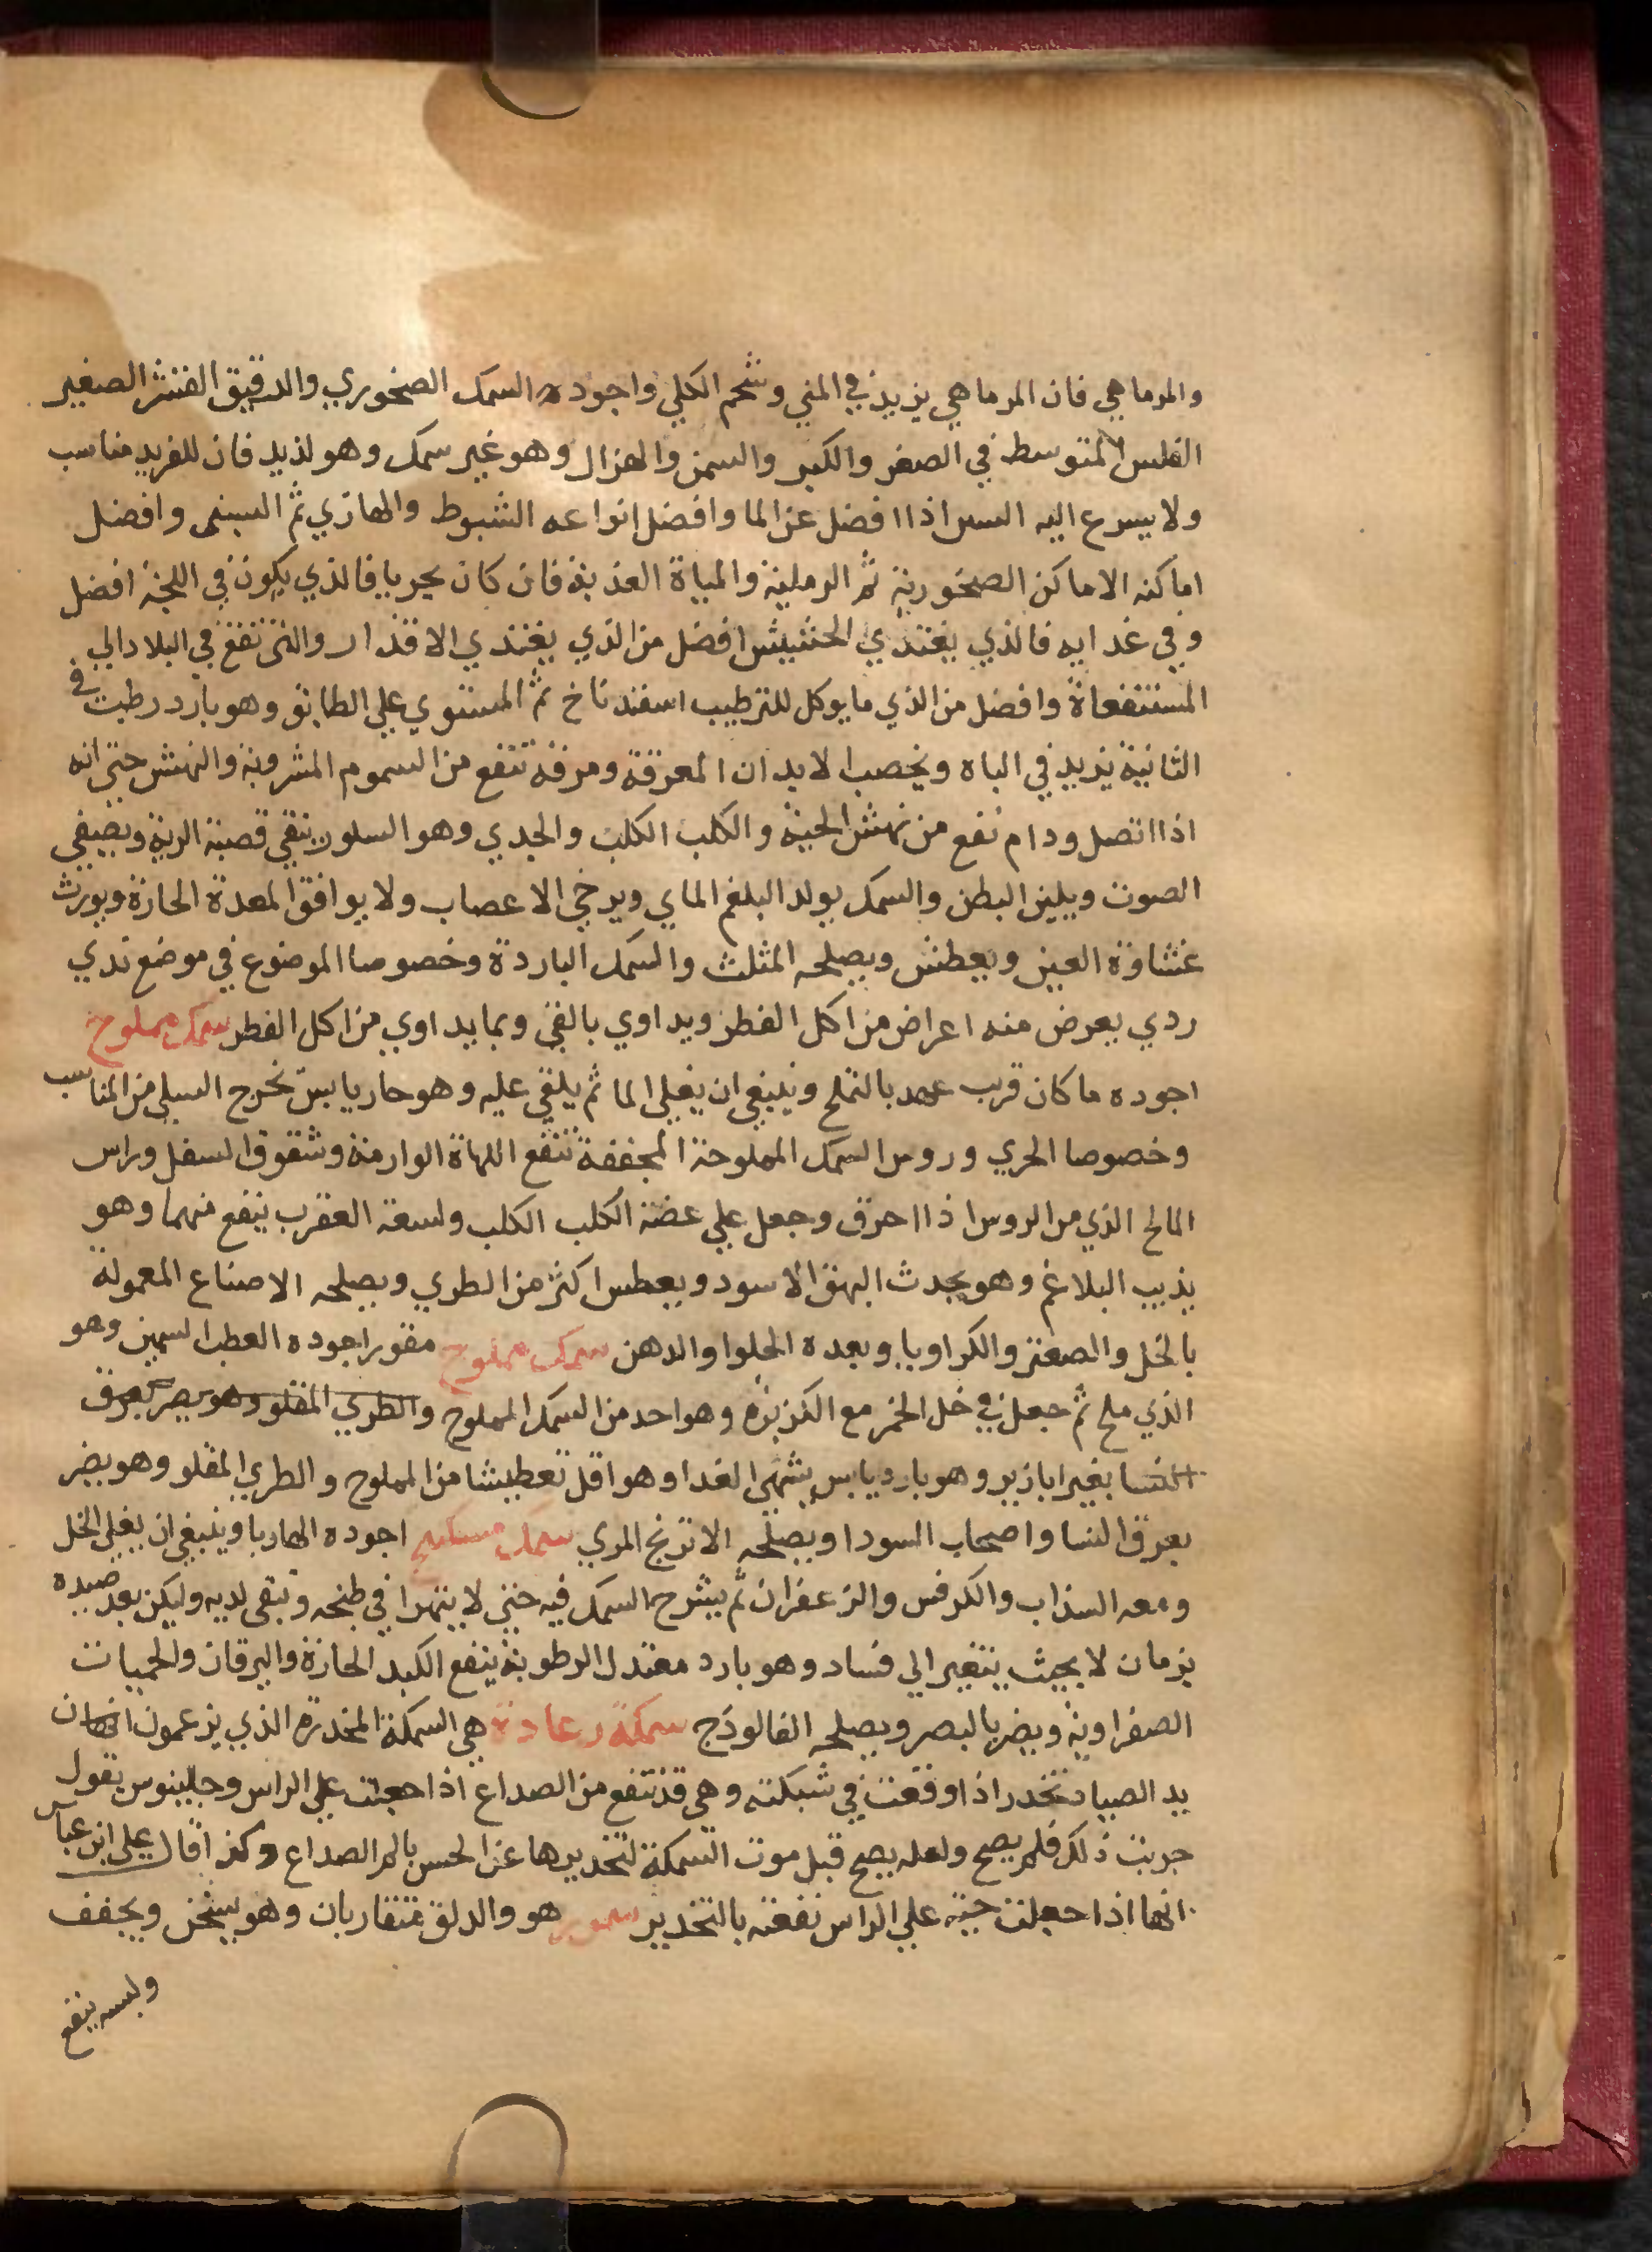 والمرماهي فان المرماهي يزيد في المني وشحم الكلي واجوده السمك الصخوري والدقيق القشر الصغير
الفلس المتوسط في الصغر والكبر والسمن والهزال وهو غير سمك وهو لذيد فان للفريد مناسب
ولا يسرع اليه السر اذا افضل عن الما وافضل انواعه الشبوط والهازي ثم السىى وافضل
اماكنه الاماكن الصخورية ثم الرملية والمياة العذبة فان كان بحريا فالذي يكون في اللجة افضل
وفي غدايه فالذي يغتذي الحشيش افضل من الذي يغتذي الاقذار والتي تقع في البلاد الي
المستنقعاة وافضل من الذي ما يوكل للترطيب اسفندناخ ثم المستوي علي الطابق وهو بارد رطب في
الثانية يزيد في الباه ويخصب الابدان المعرقة ومرقه تنفع من السموم المشروبة والنهش حتي انه
اذا اتصل ودام نفع من نهش الحية والكلب الكلب والجدي وهو السلور ينقي قصبة الرية ويصفي
الصوت ويلين البطن والسمك يولد البلغم الماي ويرخي الاعصاب ولا يوافق المعدة الحارة ويورث
غشاوة العين ويعطش ويصلحه المثلث والسمك الباردة وخصوصا الموضوع في موضع ندي
ردي يعرض منه اعراض من اكل الفطر ويداوي بالقي وبما يداوي من اكل الفطر سمك مملوح
اجوده ما كان قرب عهد بالتملح وينبغي ان يغلي الما ثم يلقي عليه وهو حار يابس يخرج السلي من المناسب
وخصوصا الجري وروس السمك المملوحة المجففة تنفع اللهاة الوارمة وشقوق السفل وراس
المالح الذي من الروس اذا احرق وجعل علي عضة الكلب الكلب ولسعة العقرب ينفع منهما وهو
يذيب البلاغم وهو يحدث البهق الاسود ويعطس اكثر من الطري ويصلحه الاصناع المعمولة
بالخل والصعتر والكراويا وبعده الحلوا والدهن سمك مملوح مقور اجوده العطب السمين وهو
الذي ملح ثم جعل في خل الخمر مع الكزبرة وهو احد من السمك المملوح والطري المقلو وهو يضر بعرق
النسا بغير ابازير وهو بارد يابس يشهي الغدا وهو اقل تعطيشا من المملوح والطري المقلو وهو يضر
بعرق النسا واصحاب السودا ويصلحه الاترنج المربي سمك مسكبج اجوده الهاربا وينبغي ان يغلي الخل
ومعه السذاب والكرفس والزعفران ثم يشرح السمك فيه حتي لا يتهرا في طبخه وتبقى لديه وليكن بعد صيده
بزمان لا بحيث يتغير الي فساد وهو بارد معتدل الرطوبة ينفع الكبد الحارة واليرقان والحميات
الصفراوية ويضر بالبصر ويصلحه الفالودج سمكة رعادة هي السمكة المخدرة الذي يزعمون انها ان
يد الصياد تخدر اذا وقعت في شبكته وهي قد تنفع من الصداع اذا جعلت علي الراس وجالينوس يقول
جربت ذلك فلم يصح ولعله يصح قبل موت السمكة لتخديرها عن الحس بالم الصداع وكذا قال علي ابن عباس
انها اذا جعلت حية علي الراس نفعته بالتخدير سمور هو والدلق متقاربان وهو يسخن ويجفف
ولبسه ينفع